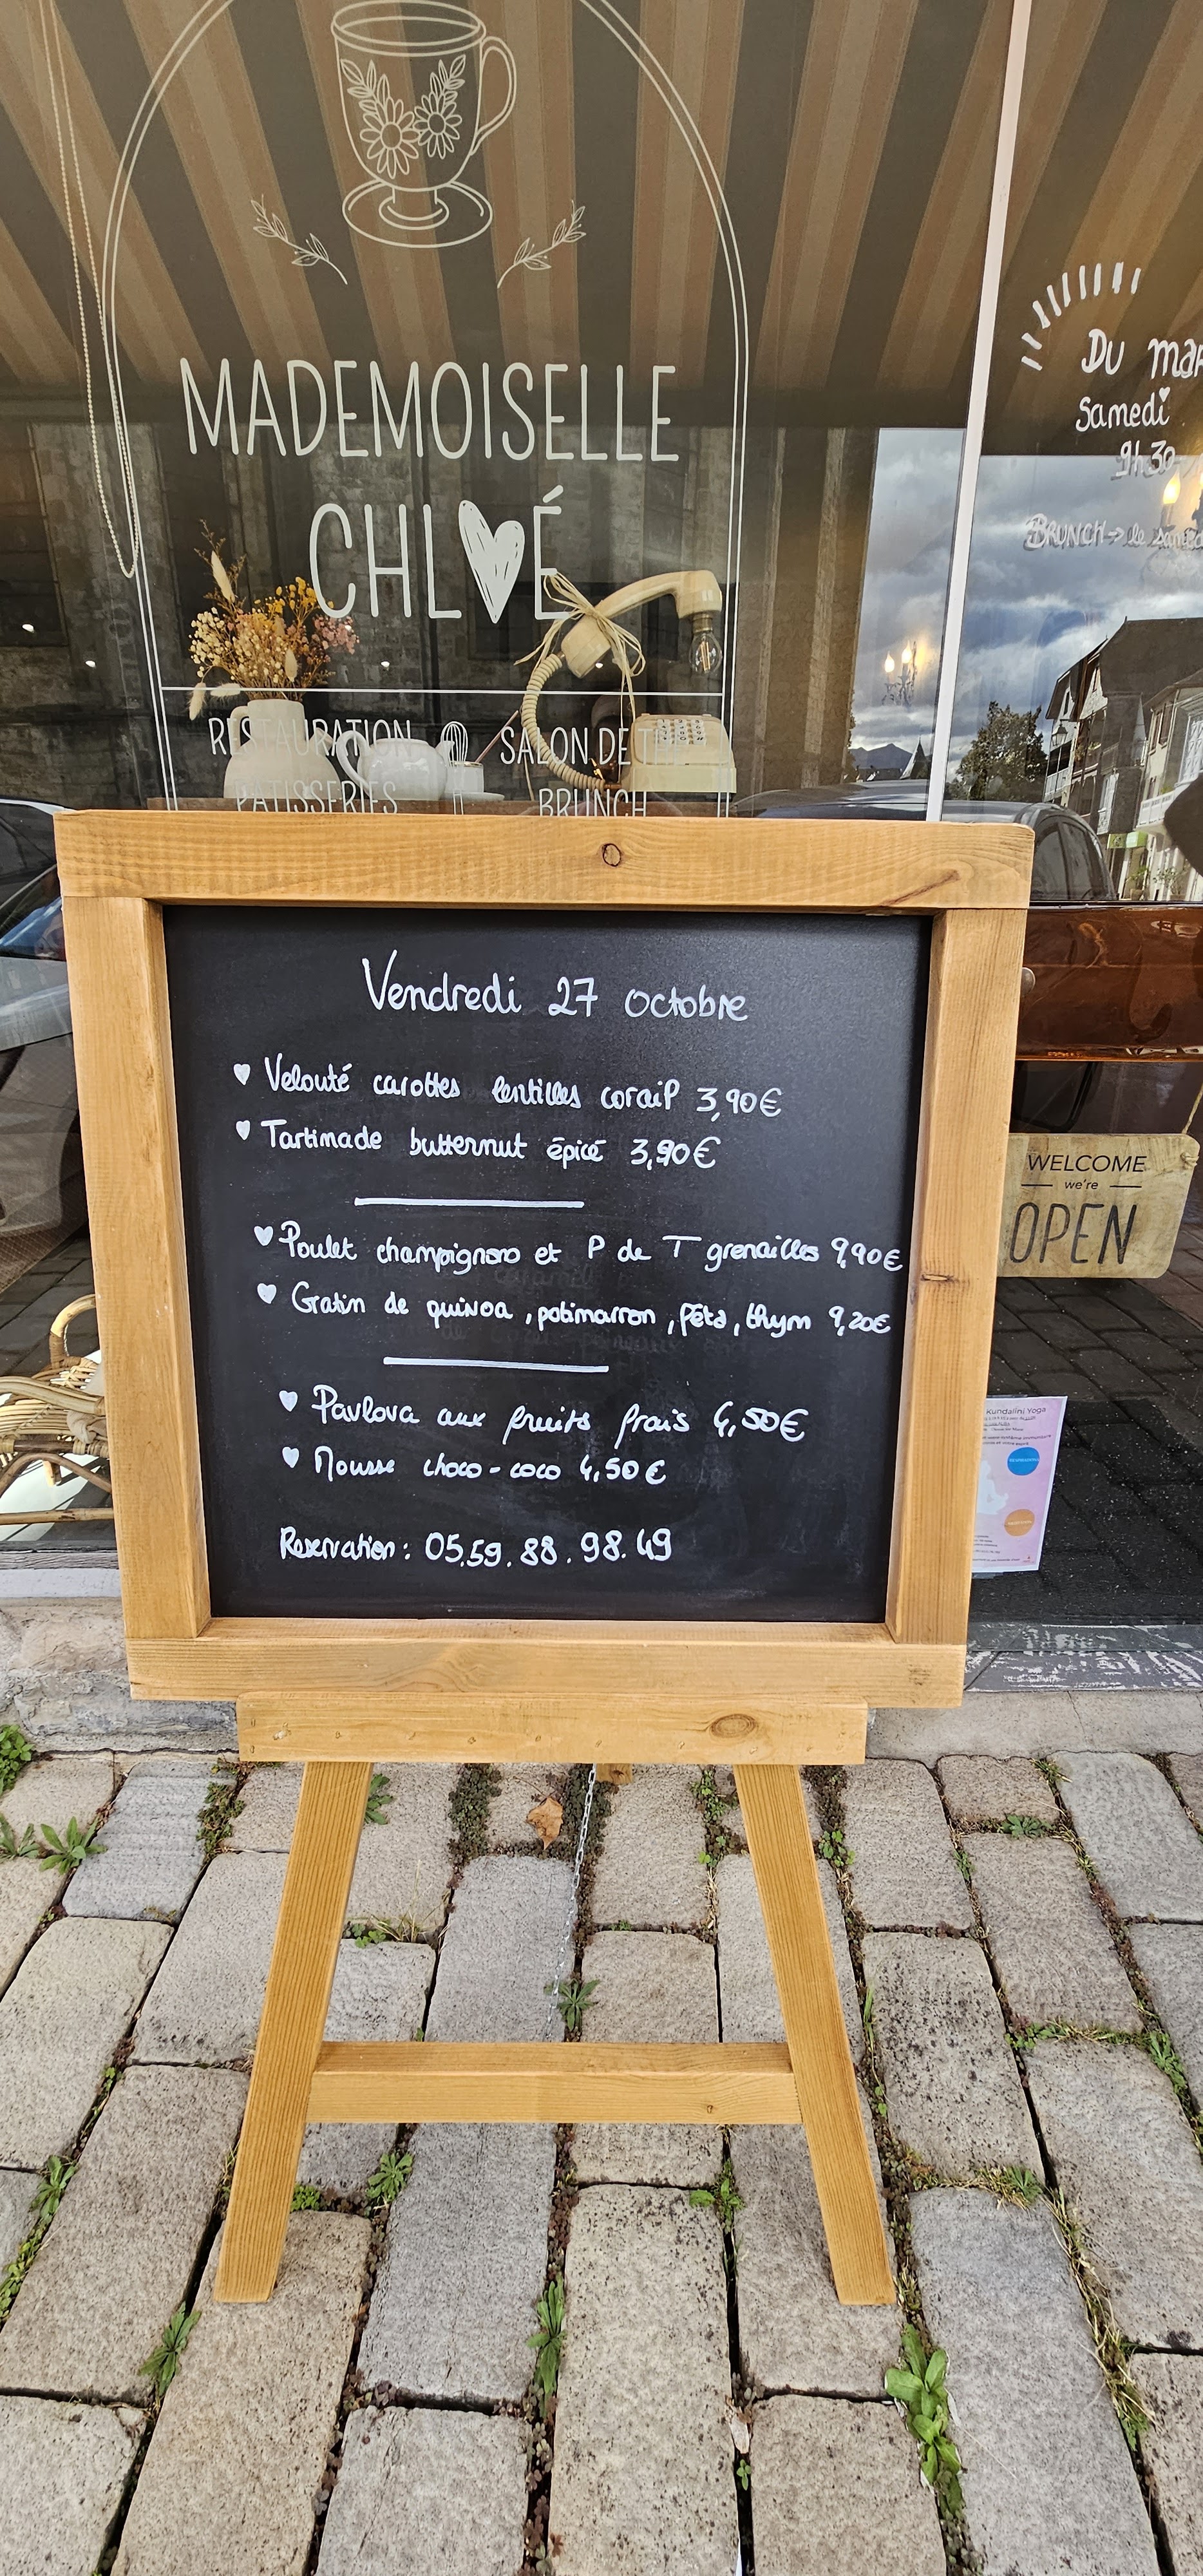 MADEMOISELLE
CHL♥É
RESTAURATION
SALON DE THÉ
PATISSERIES
BRUNCH
Du mar
Samedi
9h30-
BRUNCH → le samed
Vendredi 27 octobre
♥ Velouté carottes lentilles corail 3,90€
♥ Tartinade butternut épicé 3,90€
♥ Poulet champignons et P de T grenailles 9,90€
♥ Gratin de quinoa, potimarron, fêta, thym 9,20€
♥ Pavlova aux fruits frais 4,50€
♥ Mousse choco-coco 4,50€
Reservation: 05.59.88.98.49
WELCOME
we're
OPEN
Kundalini Yoga